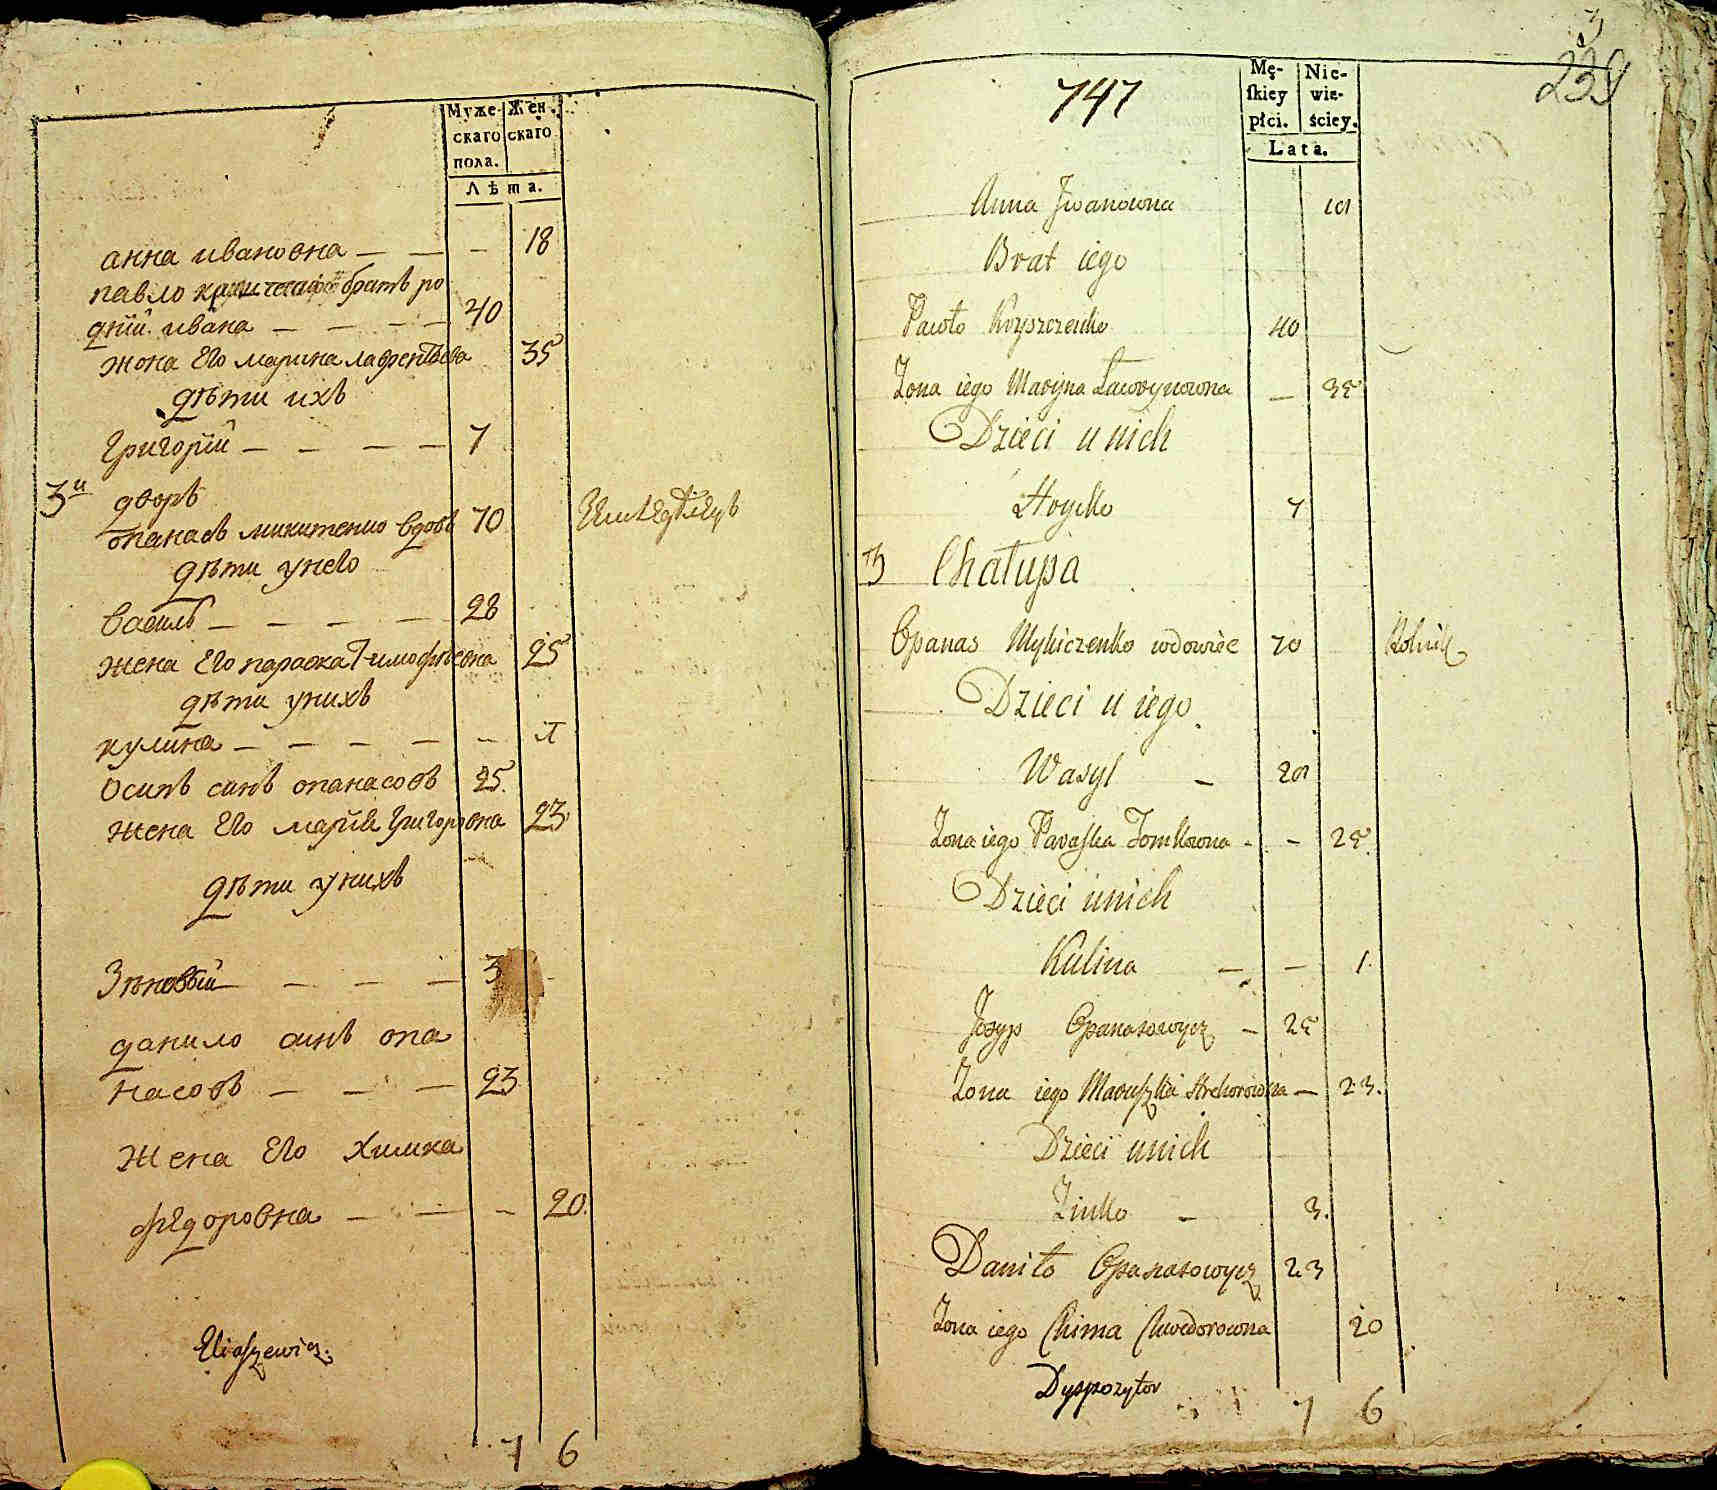 Муже-
скаго
пола.
Жен.
скаго
Лѣта.
анна ивановна — — — 18
павло братъ ро
днїй ивана — — — — 40
жона Его марина лаврентьева 35
дѣти ихъ
Григорїй — — — — 7
3й дворъ
опанасъ микитенко вдовъ 70 Землѣдѣлецъ
дѣти унего
василь — — — — 28
жена Его параска Тимофѣевна 25
дѣти унихъ
кулина — — — — —
Осипъ синъ опанасовъ 25.
жена Его марїя Григоровна 23
дѣти унихъ
Зѣновїй — — — — 3
данило синъ опа
насовъ — — — 23
жена Его Химка
федоровна — — — 20.
Eliaszewicz.
7 6
3
239
747
Mę-
skiey
płci.
Nie-
wie-
ściey.
Lata.
Anna Iwanowna 18
Brat iego
Pawło Kryszczenko 40
Zona iego Maryna Ławrynowna — 35
Dzieci u nich
Hryćko 7
3 Chałupa
Opanas Mykiczenko wdowiec 70 Rolnik
Dzieci u iego
Wasyl — 28
Zona iego Paraska Tomkowna - — 25.
Dzieci unich
Kulina — — 1.
Josyp Opanasowycz — 25
Zona iego Maruszka Hrehorowna — 23.
Dzieci unich
Zinko — 3.
Daniło Opanasowycz 23
Zona iego Chima Chwedorowna 20
Dyspozytor
7 6